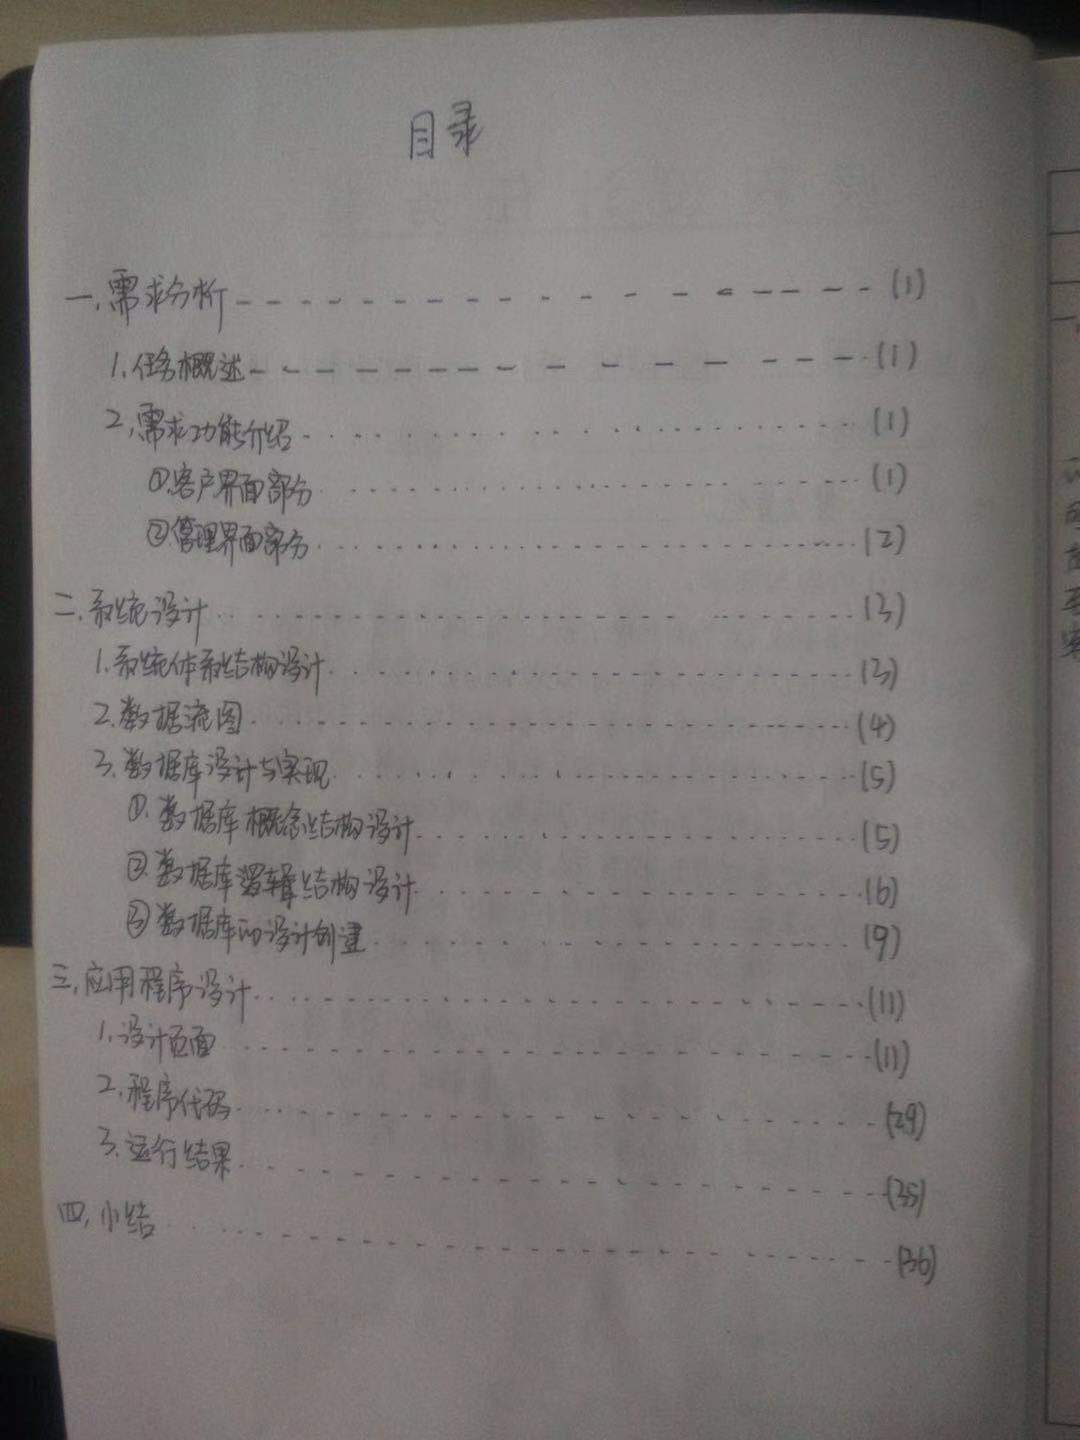 目录
一、需求分析 (1)
1、任务概述 (1)
2、需求功能介绍 (1)
①客户界面部分 (1)
②管理界面部分 (2)
二、系统设计 (3)
1、系统体系结构设计 (3)
2、数据流图 (4)
3、数据库设计与实现 (5)
①、数据库概念结构设计 (5)
②数据库逻辑结构设计 (6)
③数据库的设计创建 (9)
三、应用程序设计 (11)
1、设计页面 (11)
2、程序代码 (29)
3、运行结果 (35)
四、小结 (36)